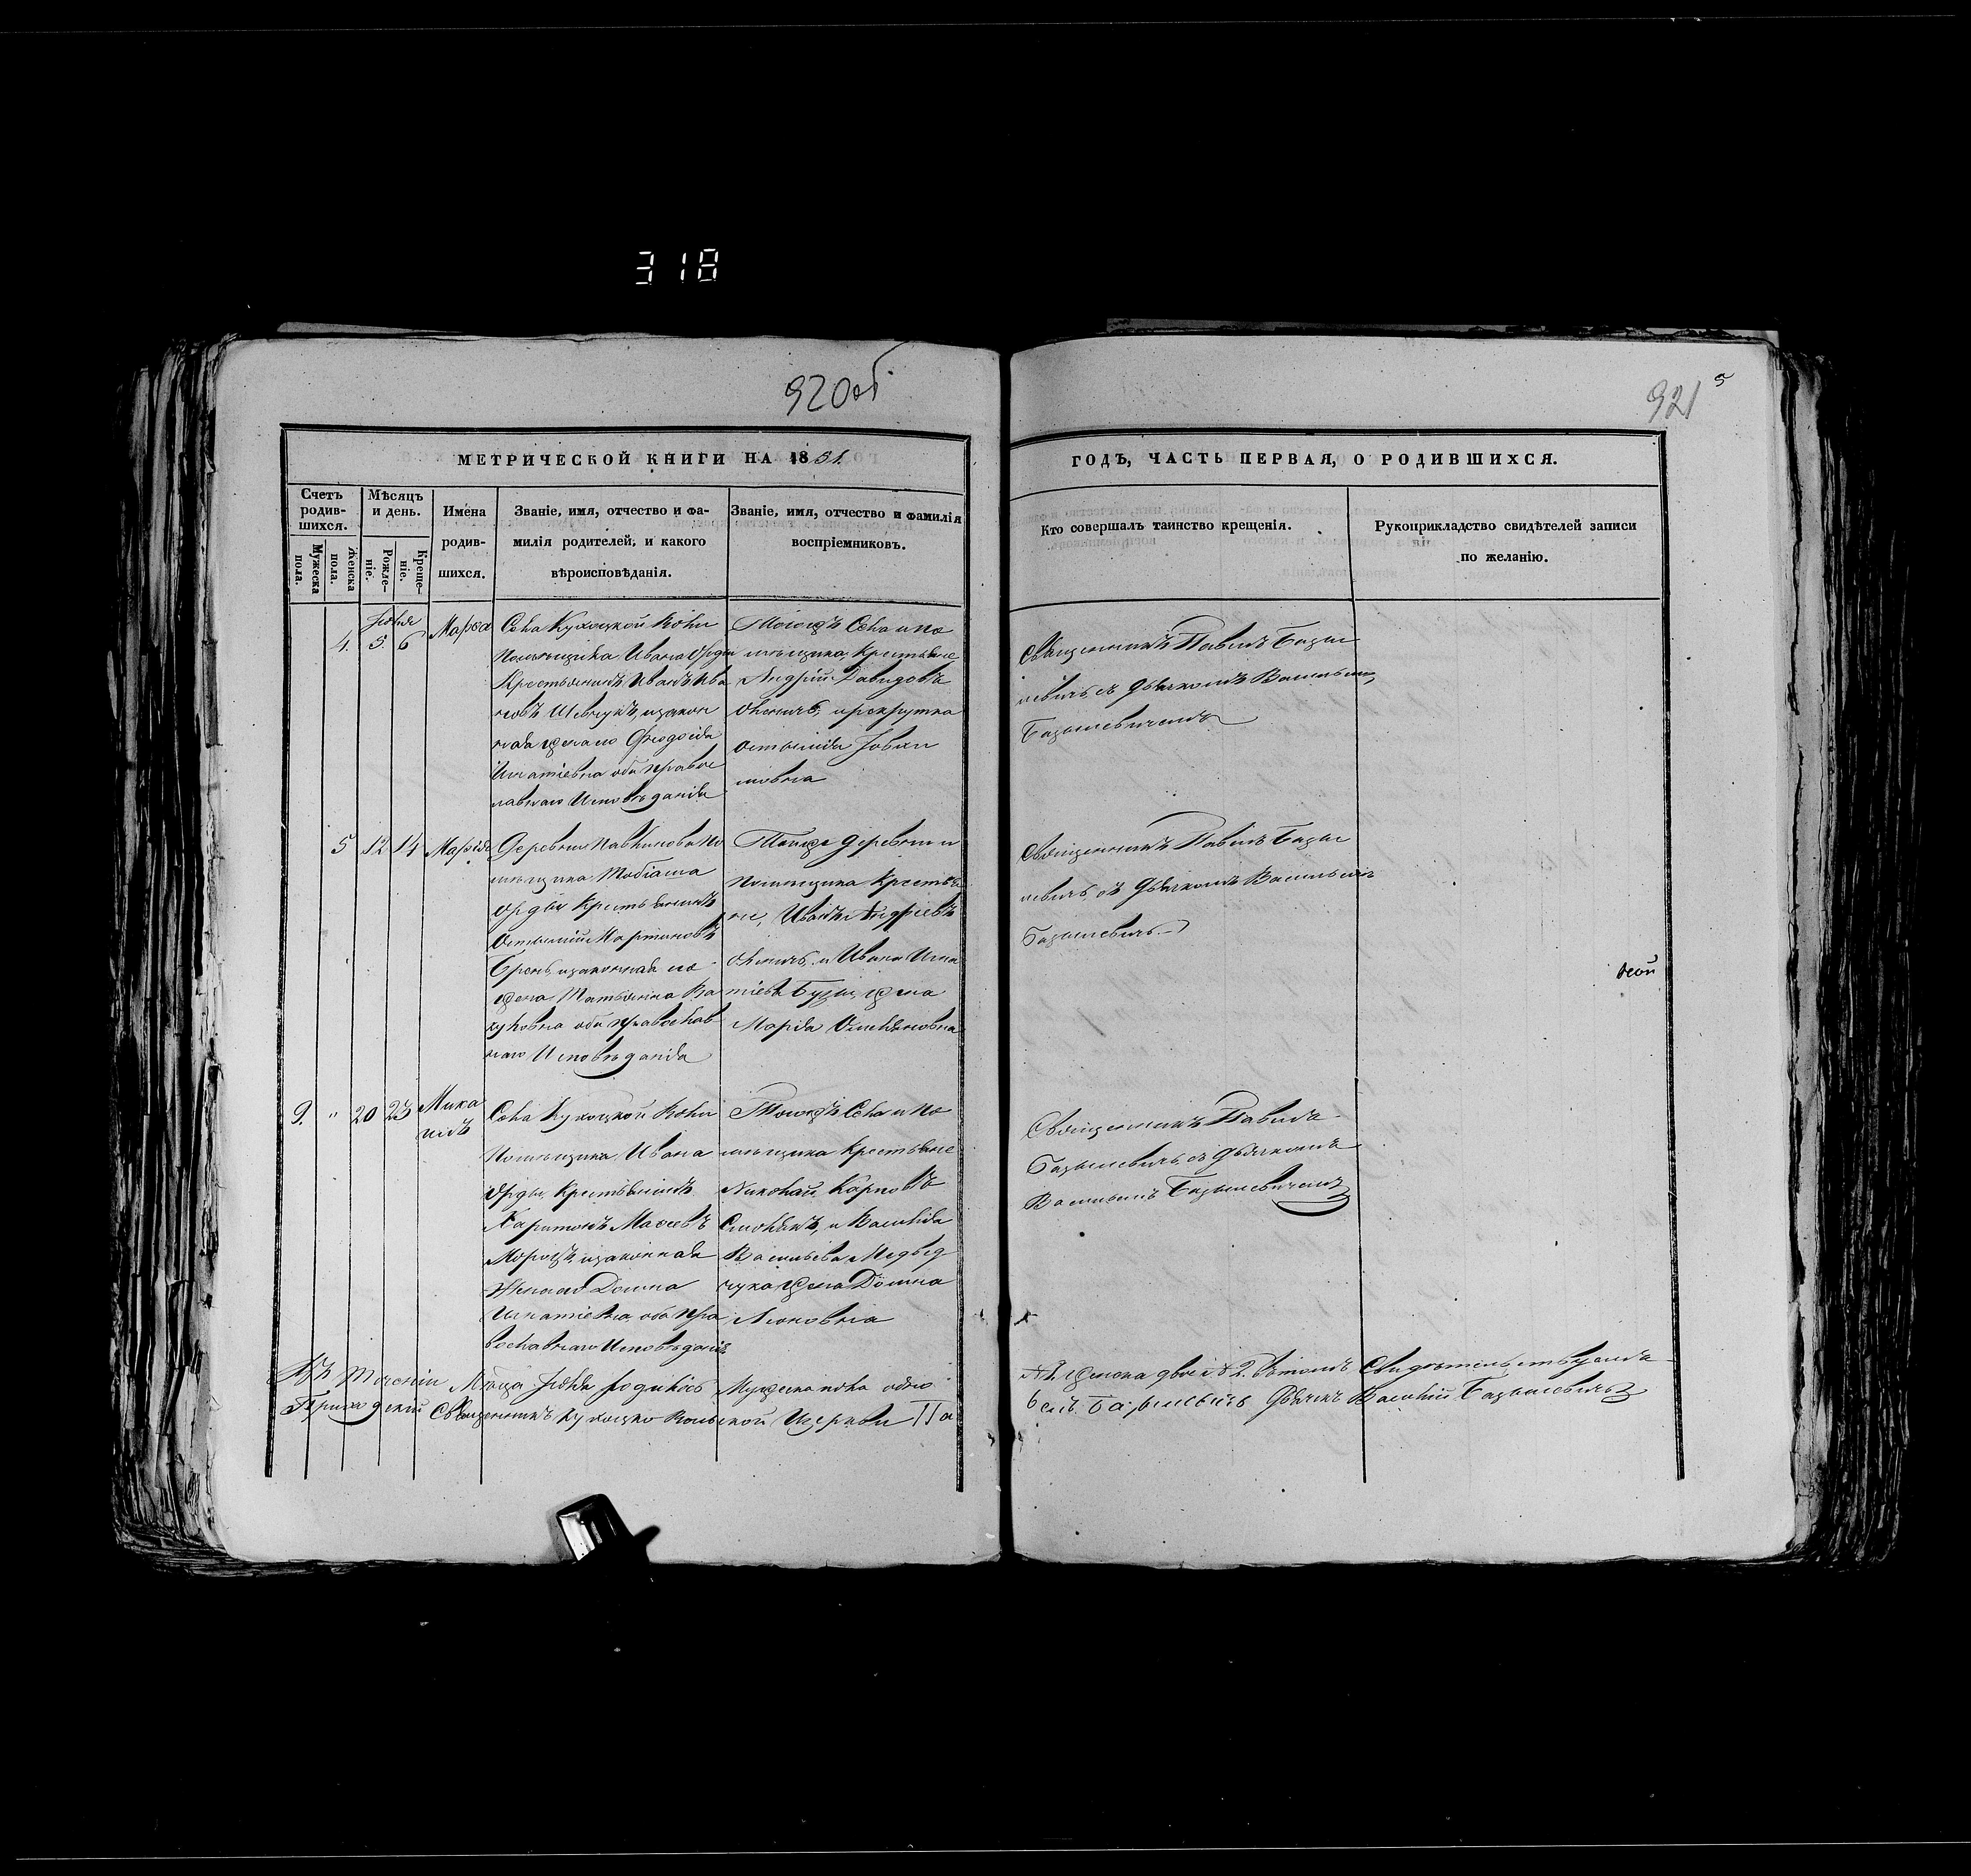 318
920об
921
5
МЕТРИЧЕСКОЙ КНИГИ НА 1851.
ГОДЪ, ЧАСТЬ ПЕРВАЯ, О РОДИВШИХСЯ.
Счетъ родив-шихся.
Мужеска пола.
Женска пола.
Мѣсяцъ и день.
Рожде-ніе.
Креще-ніе.
Имена родив-шихся.
Званіе, имя, отчество и фа-
милія родителей, и какого
вѣроисповѣданія.
Званіе, имя, отчество и фамилія
воспріемниковъ.
Кто совершалъ таинство крещенія.
Рукоприкладство свидѣтелей записи
по желанію.
Іюня
4. 5. 6 Марѳа
Села Кухоцкой Воли
Помѣщика Ивана Орды
Крестьянинъ Иванъ Ива
новъ Шевчукъ, изакон
ная жена его Ѳеодосія
Игнатіевна оба правос
лавнаго Исповѣданія
Тогожъ Села и по
мѣщика, Крестьяне
Андрій Давидовъ
рекрутка
Іоаки
мовна
Священникъ Павелъ Базы
левичъ, съ Дьячкомъ Васильем
Базылевичемъ
5 12 14 Марія
Деревни Навкинова По
мѣщика Тобіаша
Орды Крестьянинъ
Мартиновъ
изаконная его
жена Татьянна Ва
оба православ
наго Исповѣданія
Таяже деревни и
Помѣщика Крестья
не, Иванъ Андріевъ
и Ивана Игна
тіева жена
Марія Емельяновна
Священникъ Павелъ Базы
левичъ съ Дьячкомъ Васильем
Базылевичъ
9. " 20 23 Миха
илъ
Села Кухоцкой Воли
Помѣщика Ивана
Орды, Крестьянинъ
Харитонъ Масеевъ
Морозъ, изаконная
Жена его Домна
Игнатіевна, оба Пра
вославнаго Исповѣданія
Тогожъ Села и По
мѣщика Крестьяне
Николай Карповъ
и Василія
Васильева Медвед
чука жена Домна
Леоновна
Священникъ Павелъ
Базылевичъ, съ дьячкомъ
Васильемъ Базылевичемъ
Въ теченіи Мѣсяца Іюня родилось Мужеска пола одно
А женска двое 2. Вѣтомъ Свидѣтельствуемъ
Приходскій Священникъ Кухоцко Вольской Церкви Па
велъ Базылевичъ Дьячекъ Василій Базылевичъ